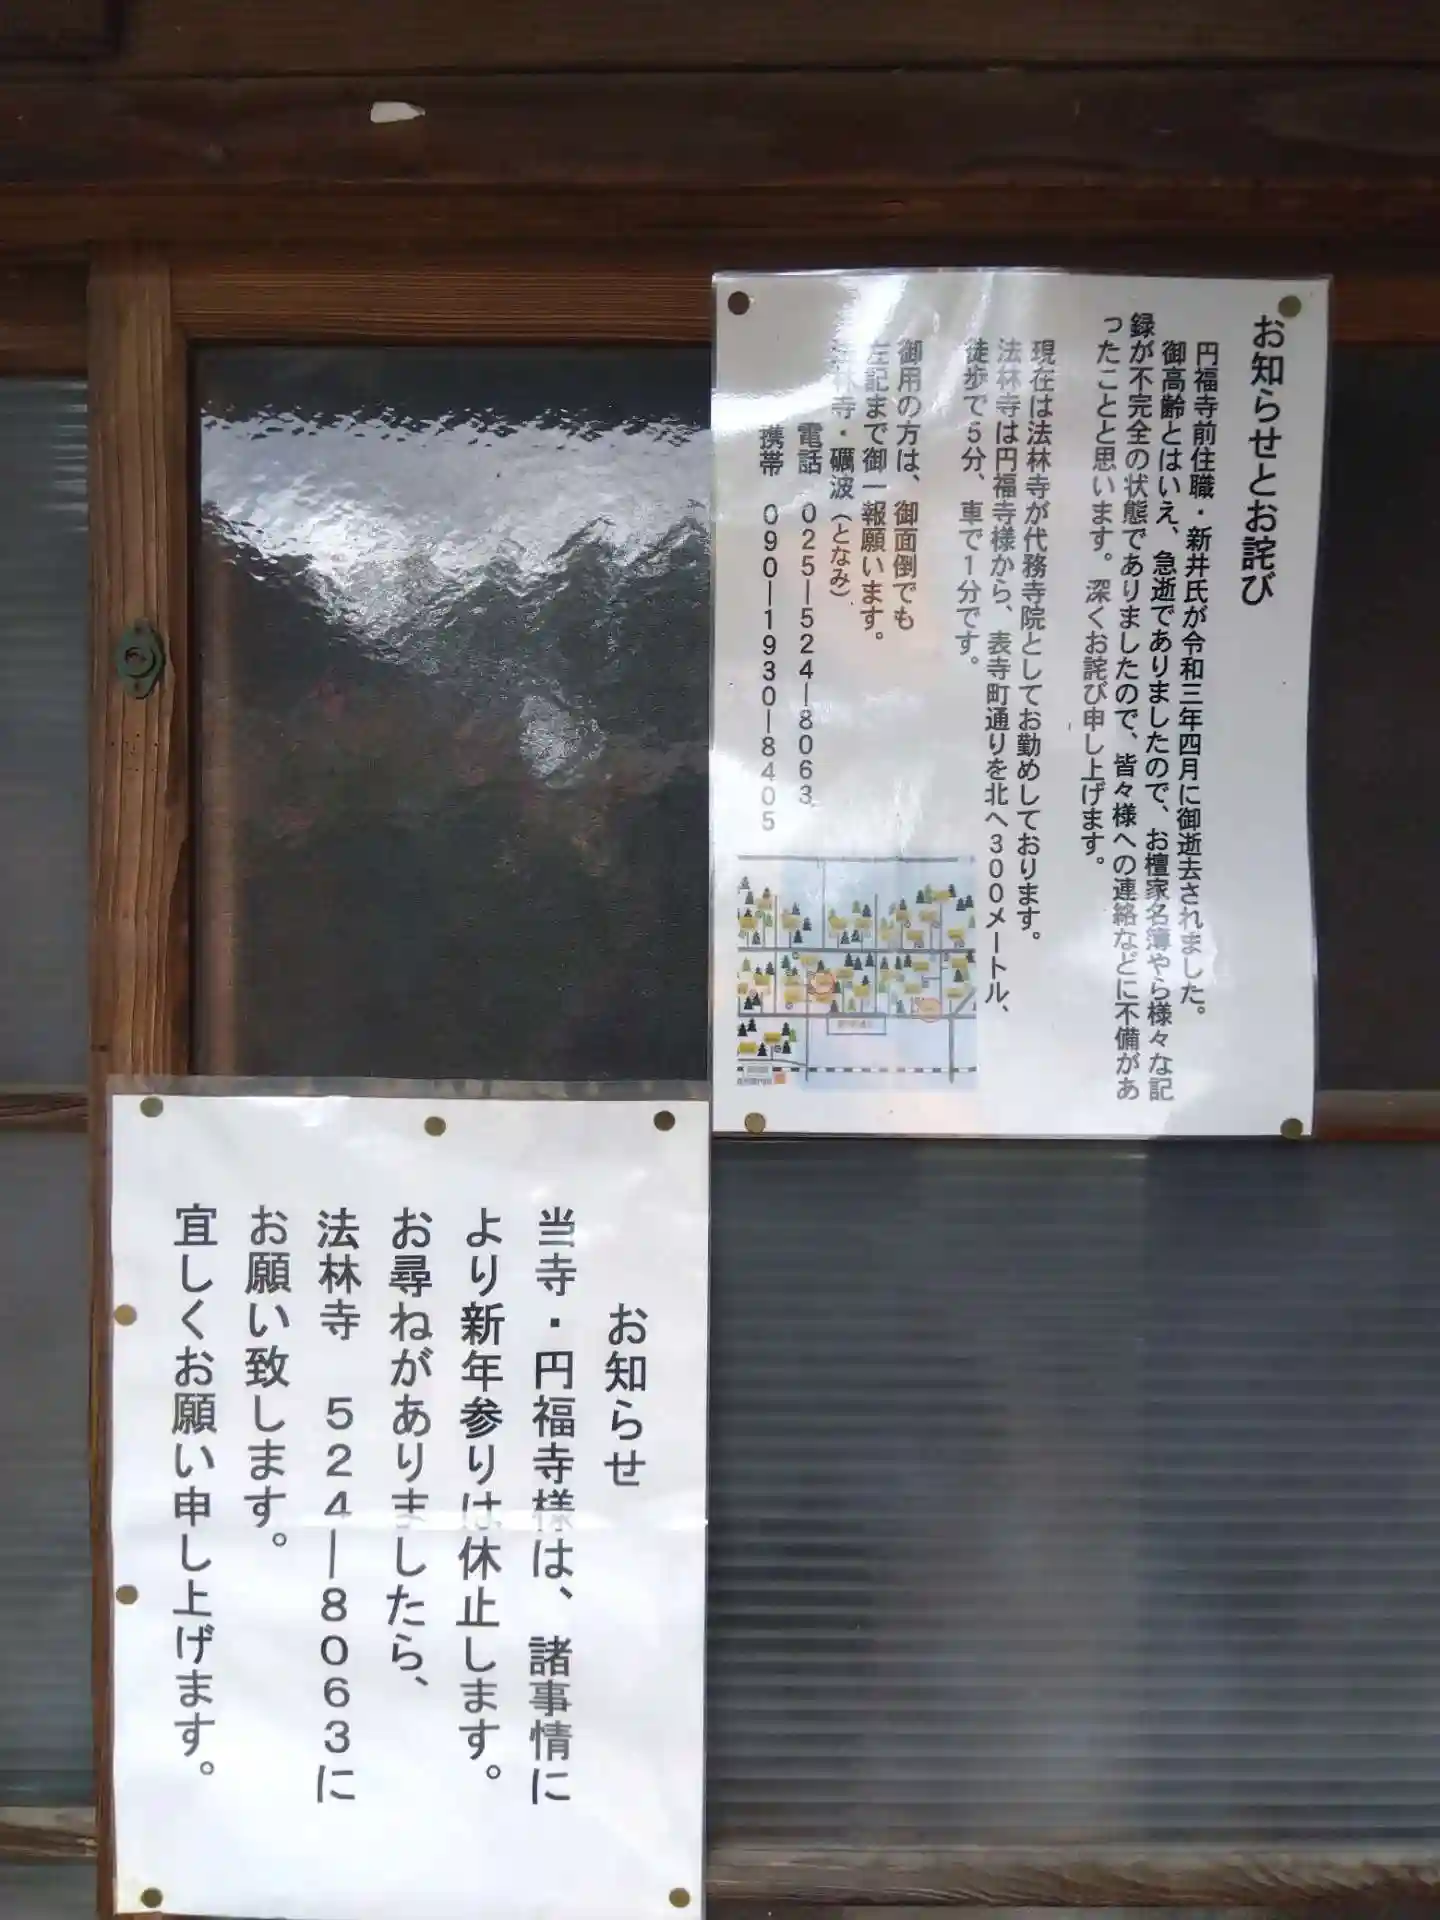 お知らせとお詫び
円福寺前住職・新井氏が令和三年四月に御逝去されました。
御高齢とはいえ、急逝でありましたので、お檀家名簿やら様々な記
録が不完全の状態でありましたので、皆々様への連絡などに不備があ
ったことと思います。深くお詫び申し上げます。
現在は法林寺が代務寺院としてお勤めしております。
法林寺は円福寺様から、表寺町通りを北へ300メートル、
徒歩で5分、車で1分です。
御用の方は、御面倒でも
左記まで御一報願います。
法林寺・礪波（となみ）
電話 025―524―8063
携帯 090―1930―8405
お知らせ
当寺・円福寺様は、諸事情に
より新年参りは休止します。
お尋ねがありましたら、
法林寺 524―8063に
お願い致します。
宜しくお願い申し上げます。